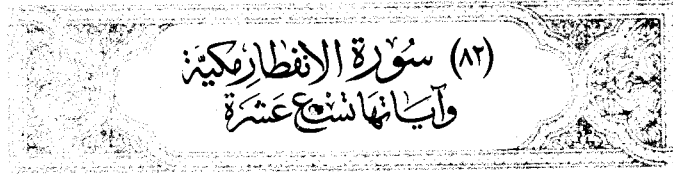 (٨٢) سُورَة الانفطارِ مكيَّة
وَآيَاتهَا تسْع عَشرَة